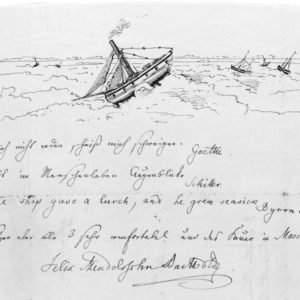 ich nicht reden heiß mich schweigen. Goethe
es im Menschenleben Augenblicke Schiller.
the ship gave a lurch, and he grew seasick. Byron
aber alle 3 sehr und das in
Felix Mendelssohn Bartholdy